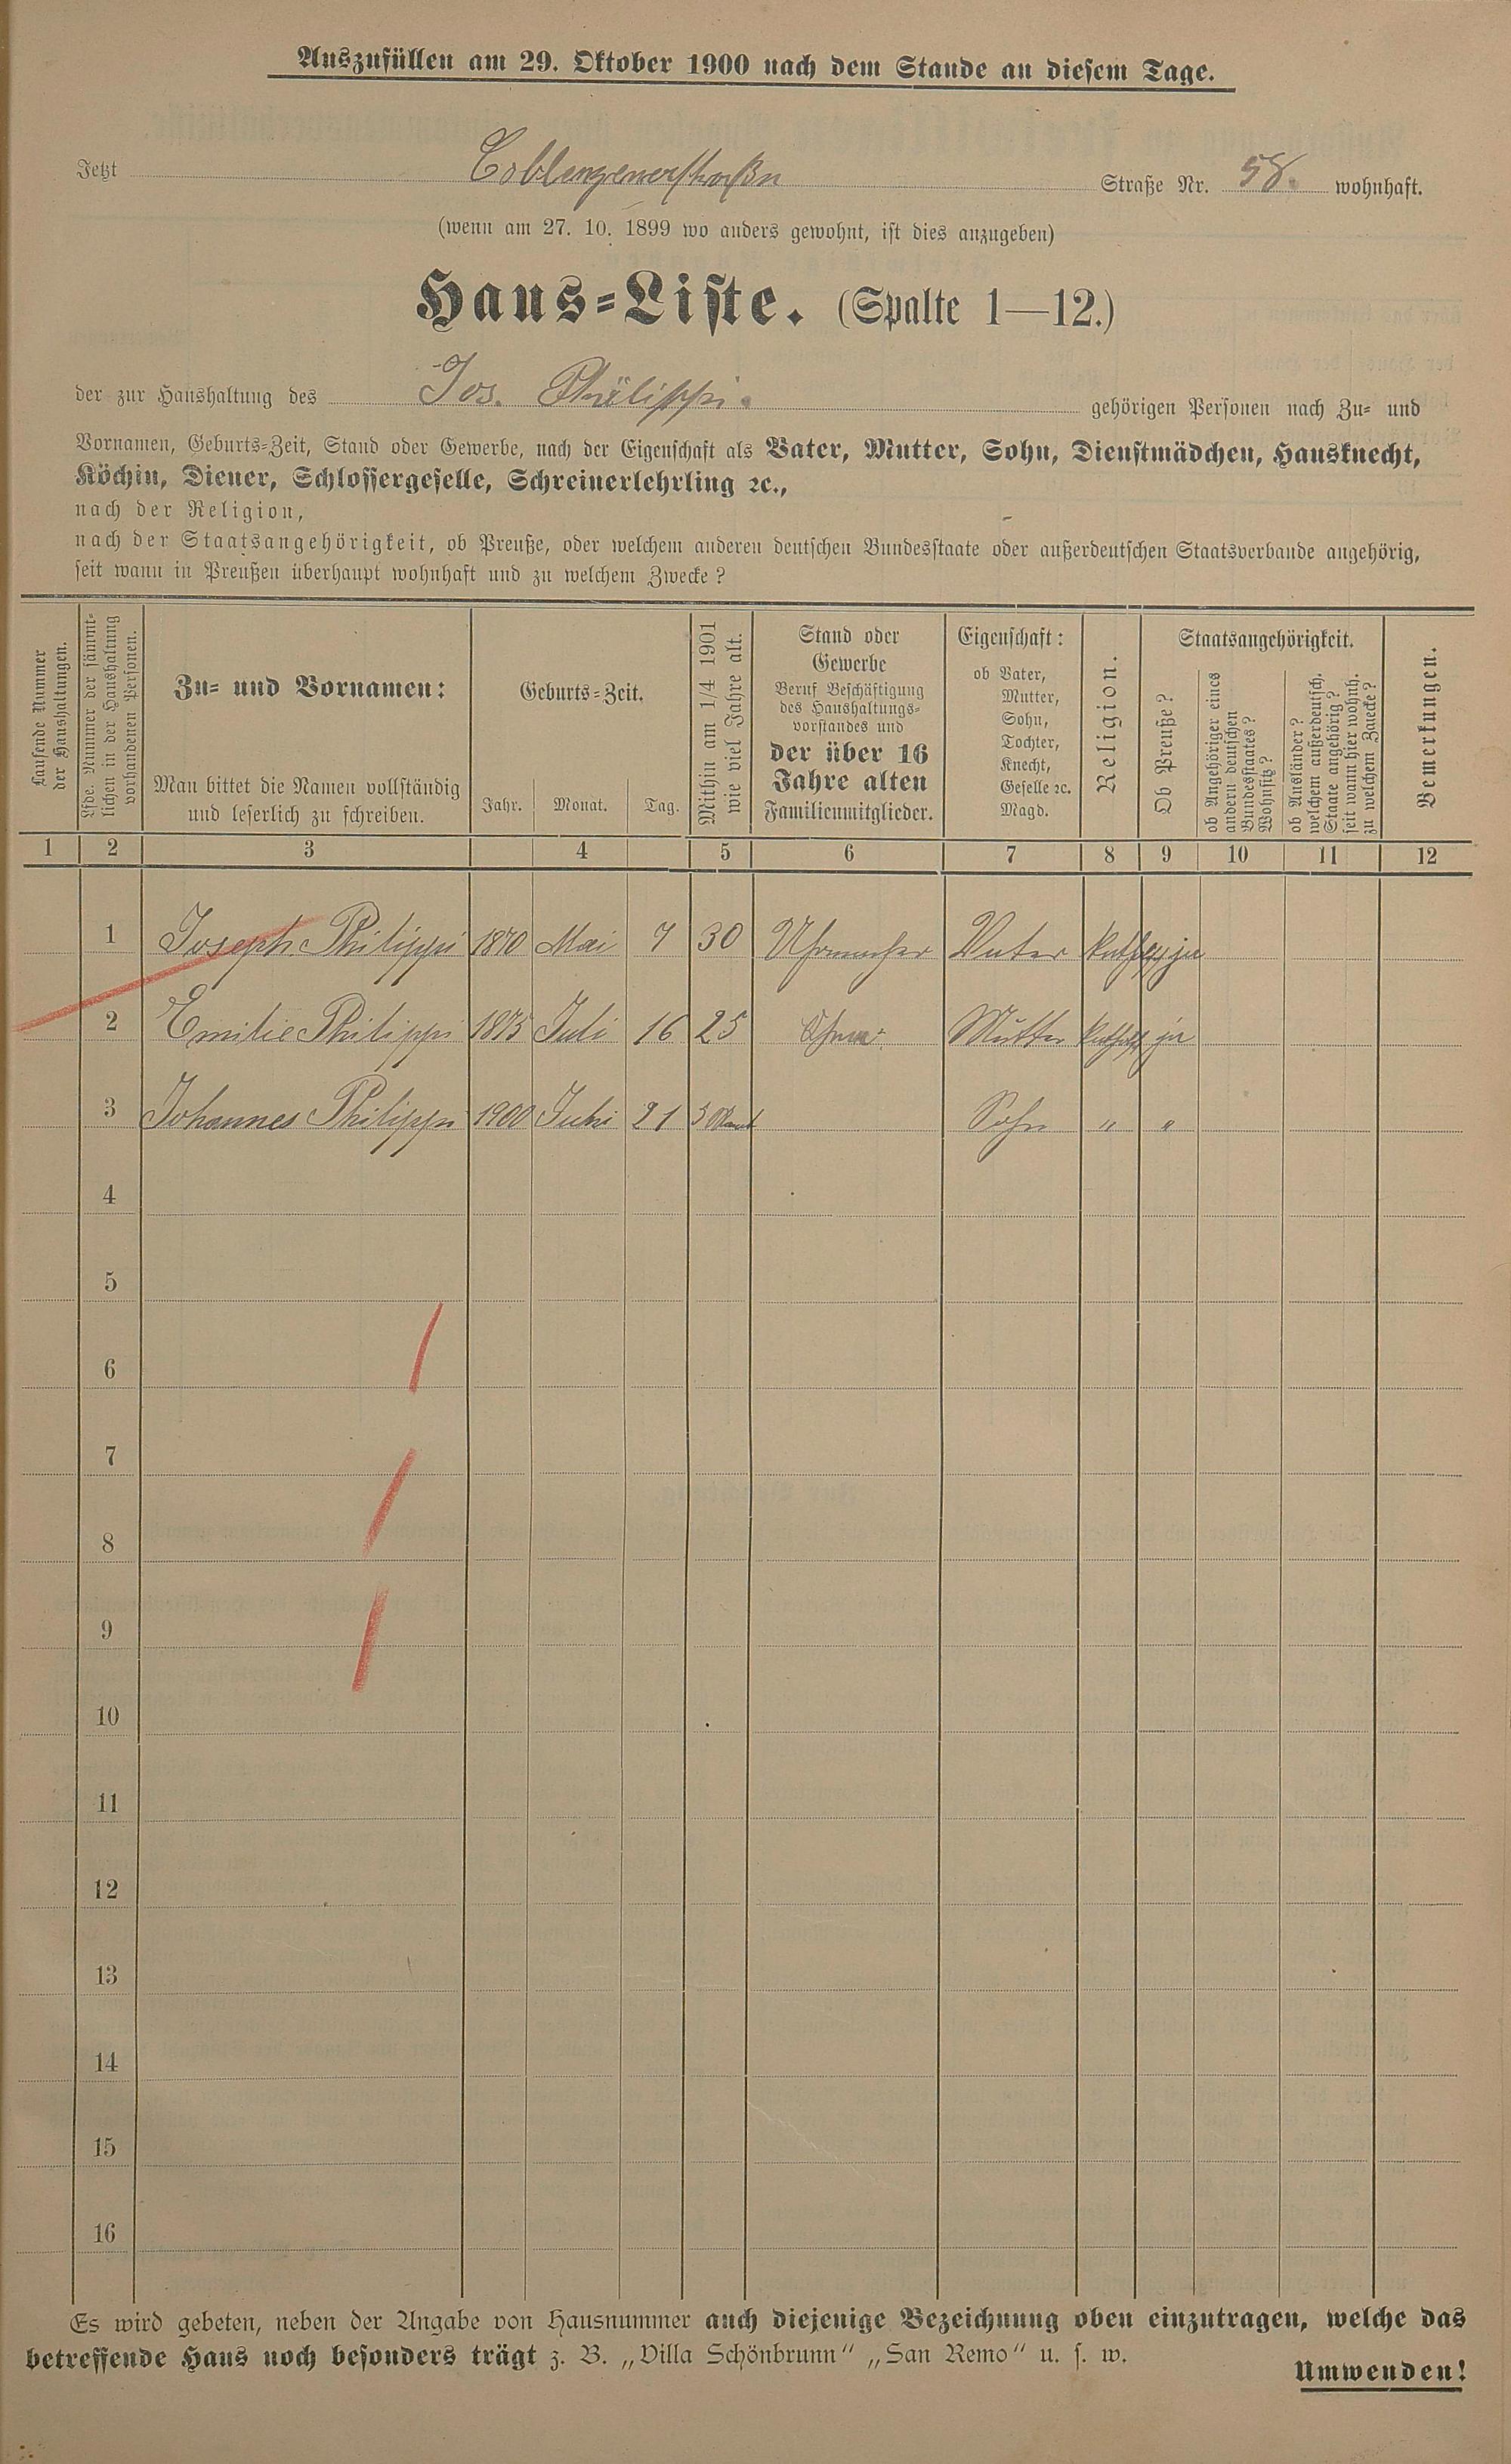 Auszufüllen am 29. Oktober 1900 nach dem Stande an diesem Tage.
Jetzt Coblenzenerstraße Straße Nr. 58. wohnhaft.
(wenn am 27. 10. 1899 wo anders gewohnt, ist dies anzugeben)
Haus-Liste. (Spalte 1—12.)
der zur Haushaltung des Jos. Philippi. gehörigen Personen nach Zu- und
Vornamen, Geburts-Zeit, Stand oder Gewerbe, nach der Eigenschaft als Vater, Mutter, Sohn, Dienstmädchen, Hausknecht,
Köchin, Diener, Schlossergeselle, Schreinerlehrling ꝛc.,
nach der Religion,
nach der Staatsangehörigkeit, ob Preuße, oder welchem anderen deutschen Bundesstaate oder außerdeutschen Staatsverbande angehörig,
seit wann in Preußen überhaupt wohnhaft und zu welchem Zwecke?
Laufende Nummer
der Haushaltungen.
Lfde. Nummer der sämmt-
lichen in der Haushaltung
vorhandenen Personen.
Zu- und Vornamen:
Man bittet die Namen vollständig
und leserlich zu schreiben.
Geburts-Zeit.
Jahr. Monat. Tag.
Mithin am 1/4 1901
wie viel Jahre alt.
Stand oder
Gewerbe
Beruf Beschäftigung
des Haushaltungs-
vorstandes und
der über 16
Jahre alten
Familienmitglieder.
Eigenschaft:
ob Vater,
Mutter,
Sohn,
Tochter,
Knecht,
Geselle ꝛc.
Magd.
Religion.
Staatsangehörigkeit.
Ob Preuße?
ob Angehöriger eines
andern deutschen
Bundesstaates?
Wohnsitz?
ob Ausländer?
welchem außerdeutsch.
Staate angehörig?
seit wann hier wohnh.
zu welchem Zwecke?
Bemerkungen.
1 2 3 4 5 6 7 8 9 10 11 12
1 Joseph Philippi 1870 Mai 7 30 Uhrmacher Vater ja
2 Emilie Philippi 1875 Juli 16 25 Mutter ja
3 Johannes Philippi 1900 Juli 21 3 Sohn " "
4
5
6
7
8
9
10
11
12
13
14
15
16
Es wird gebeten, neben der Angabe von Hausnummer auch diejenige Bezeichnung oben einzutragen, welche das
betreffende Haus noch besonders trägt z. B. „Villa Schönbrunn" „San Remo" u. s. w.
Umwenden!